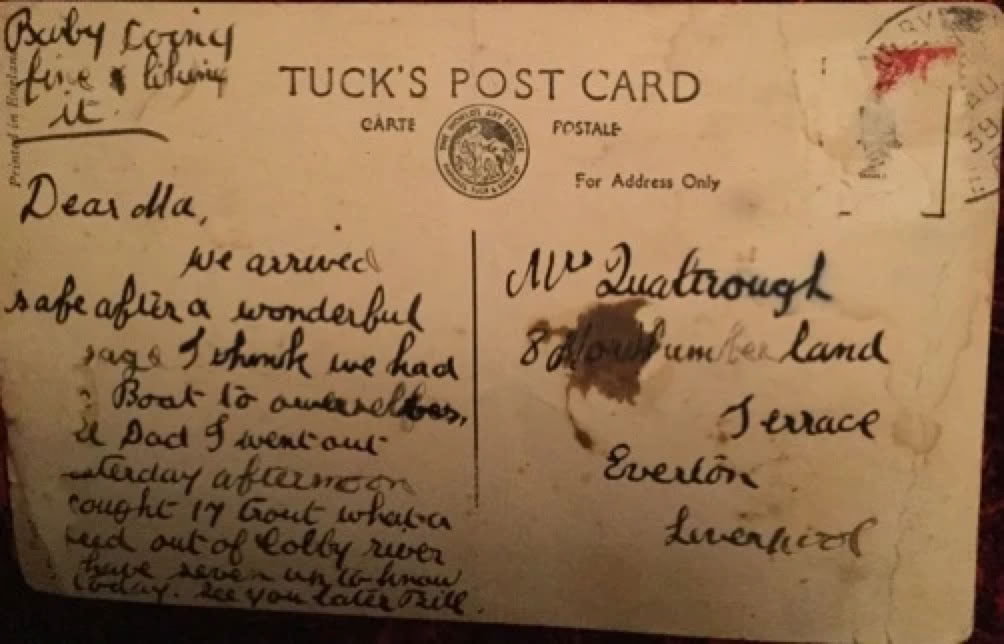 Baby going
fine & liking
it
Printed in England
TUCK'S POST CARD
CARTE POSTALE
THE WORLD'S ART SERVICE
RAPHAEL TUCK & SONS LTD
For Address Only
AU
39
Dear Ma,
we arrived
safe after a wonderful
I think we had
Boat to ourselves,
Dad I went out
afternoon
17 trout what a
out of Colby river
have seven up to know
today. See you later Bill.
Mrs Qualtrough
8 Northumberland
Terrace
Everton
Liverpool